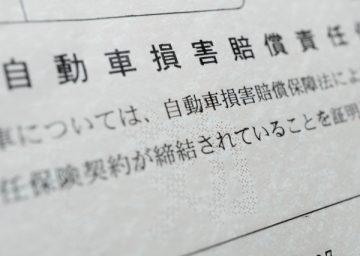 自動車損害賠償責任
車については、自動車損害賠償保障法によ
任保険契約が締結されていることを証明